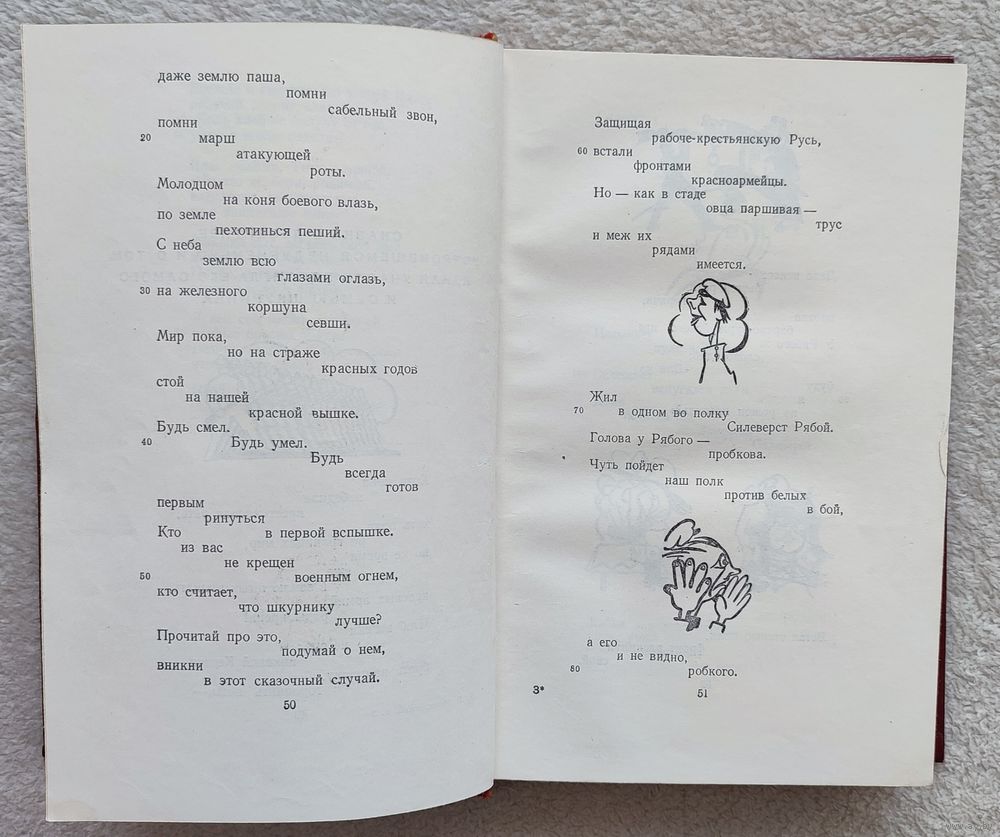 даже землю паша,
помни
сабельный звон,
помни
20 марш
атакующей
роты.
Молодцом
на коня боевого влазь,
по земле
пехотинься пеший.
С неба
землю всю
глазами оглазь,
30 на железного
коршуна
севши.
Мир пока,
но на страже
красных годов
стой
на нашей
красной вышке.
Будь смел.
40 Будь умел.
Будь
всегда
готов
первым
ринуться
в первой вспышке.
Кто
из вас
не крещен
50 военным огнем,
кто считает,
что шкурнику
лучше?
Прочитай про это,
подумай о нем,
вникни
в этот сказочный случай.
50
Защищая
рабоче-крестьянскую Русь,
60 встали
фронтами
красноармейцы.
Но — как в стаде
овца паршивая —
трус
и меж их
рядами
имеется.
Жил
70 в одном во полку
Силеверст Рябой.
Голова у Рябого —
пробкова.
Чуть пойдет
наш полк
против белых
в бой,
а его
и не видно,
80 робкого.
3*
51